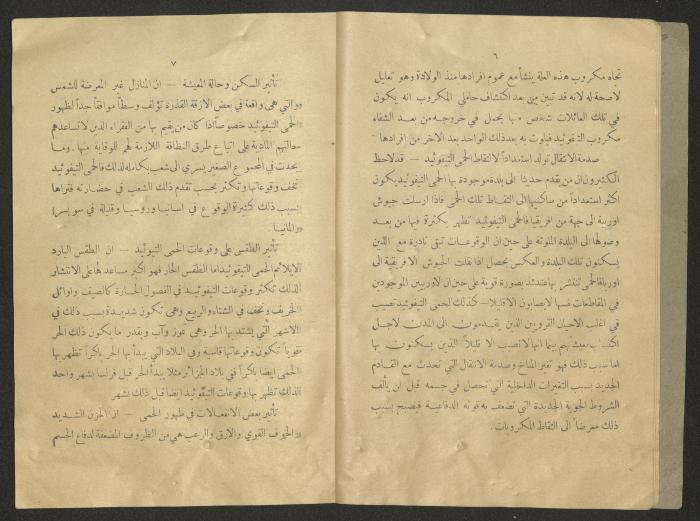 ٦
تجاه مكروب هذه العلة ينشأ مع عموم افرادها منذ الولادة وهو تعليل
لاصحة له لانه قد تبين من بعد اكتشاف حاملي المكروب انه يكون
في تلك العائلات شخص منها يحمل في خروجه من بعد الشفاء
مكروب التيفوئيد فيلوث به بعد ذلك الواحد بعد الآخر من افرادها
صدمة الانتقال تولد استعداداً لالتقاط الحمى التيفوئيد — قد لاحظ
الكثيرون ان من يقدم حديثاً الى بلدة موجودة بها الحمى التيفوئيد يكون
اكثر استعداداً من ساكنيها الى التقاط تلك الحمى فاذا ارسلت جيوش
اوربية الى جهة من افريقيا فالحمى التيفوئيد تظهر بكثرة فيها من بعد
وصولها الى البلدة الملوثة على حين ان الوقوعات تبقى نادرة مع الذين
يسكنون تلك البلدة والعكس يحصل اذا نقلت الجيوش الافريقية الى
اوربا فالحمى تنتشر بها عندئذ بصورة قوية على حين ان الاوربيين الموجودين
في المقاطعات نفسها لا يصابون الا قليلا — كذلك الحمى التيفوئيد تصيب
في اغلب الاحيان القرويين الذين يقدمون الى المدن لاجل
اكتساب معيشتهم بينما انها لا تصيب الا قليلاً الذين يسكنون بها
اما سبب ذلك فهو تغير المناخ وصدمة الانتقال التي تحدث مع القادم
الجديد بسبب التغيرات الداخلية التي تحصل في جسمه قبل ان يألف
الشروط الجوية الجديدة التي تضعف به قوته الدفاعية فيصبح بسبب
ذلك معرضاً الى التقاط المكروبات.
٧
تأثير السكن وحالة المعيشة — ان المنازل غير المعرضة للشمس
والتي هي واقعة في بعض الازقة القذرة تؤلف وسطاً موافقاً جداً لظهور
الحمى التيفوئيد خصوصاً اذا كان من يقيم بها من الفقراء الذين لا تساعدهم
حالتهم المادية على اتباع طرق النظافة اللازمة لهم للوقاية منها. وما
يحدث في المجموع الصغير يسري الى شعب بكامله لذلك فالحمى التيفوئيد
تخف وقوعاتها وتكثر بحسب تقدم ذلك الشعب في حضارته فتراها
بسبب ذلك كثيرة الوقوع في اسبانيا وروسيا وقليلة في سويسرا
والمانيا.
تأثير الطقس على وقوعات الحمى التيفوئيد — ان الطقس البارد
لا يلائم الحمى التيفوئيد اما الطقس الحار فهو اكثر مساعد لها على الانتشار
لذلك تكثر وقوعات التيفوئيد في الفصول الحارة كالصيف واوائل
الخريف وتخف في الشتاء والربيع وهي تكون شديدة بسبب ذلك في
الاشهر التي يشتد بها الحر وهي تموز وآب وبقدر ما يكون ذلك الحر
قوياً تكون وقوعاتها قاسية وفي البلاد التي يبدأ بها الحر باكراً تظهر بها
الحمى ايضاً باكراً في بلاد الجزائر مثلا يبدأ الحر قبل فرنسا بشهر واحد
لذلك تظهر بها وقوعات التيفوئيد ايضا قبل ذلك بشهر
تأثير بعض الانفعالات في ظهور الحمى — ان الحزن الشديد
والخوف القوي والارق والرعب هي من الظروف المضعفة لدفاع الجسم